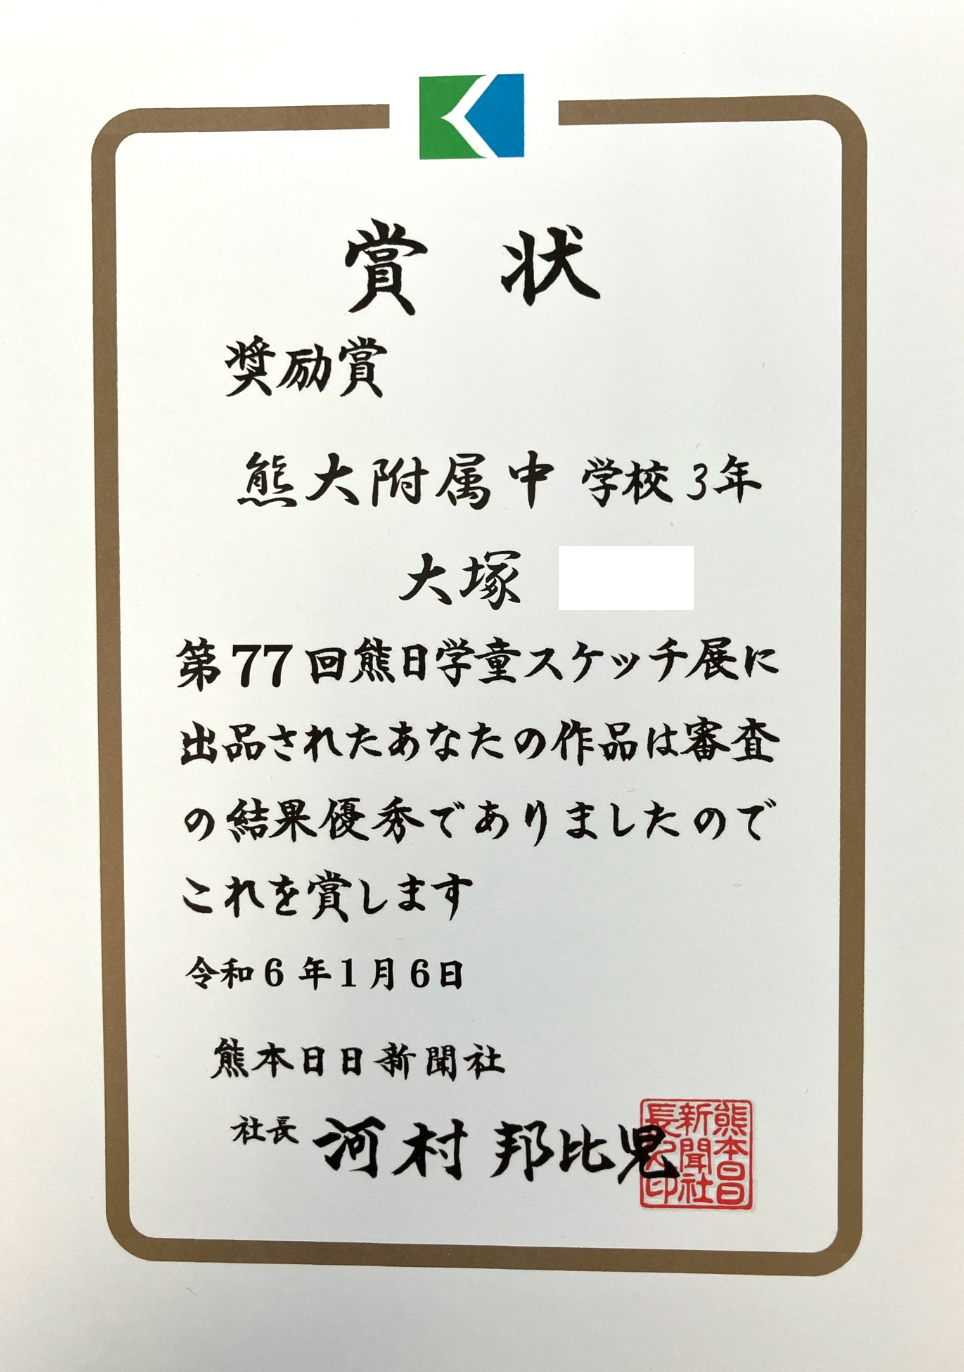 賞状
奨励賞
熊大附属中 学校 3年
大塚
第77回熊日学童スケッチ展に
出品されたあなたの作品は審査
の結果優秀でありましたので
これを賞します
令和6年1月6日
熊本日日新聞社
社長 河村 邦比児
熊本日日
新聞社
長之印